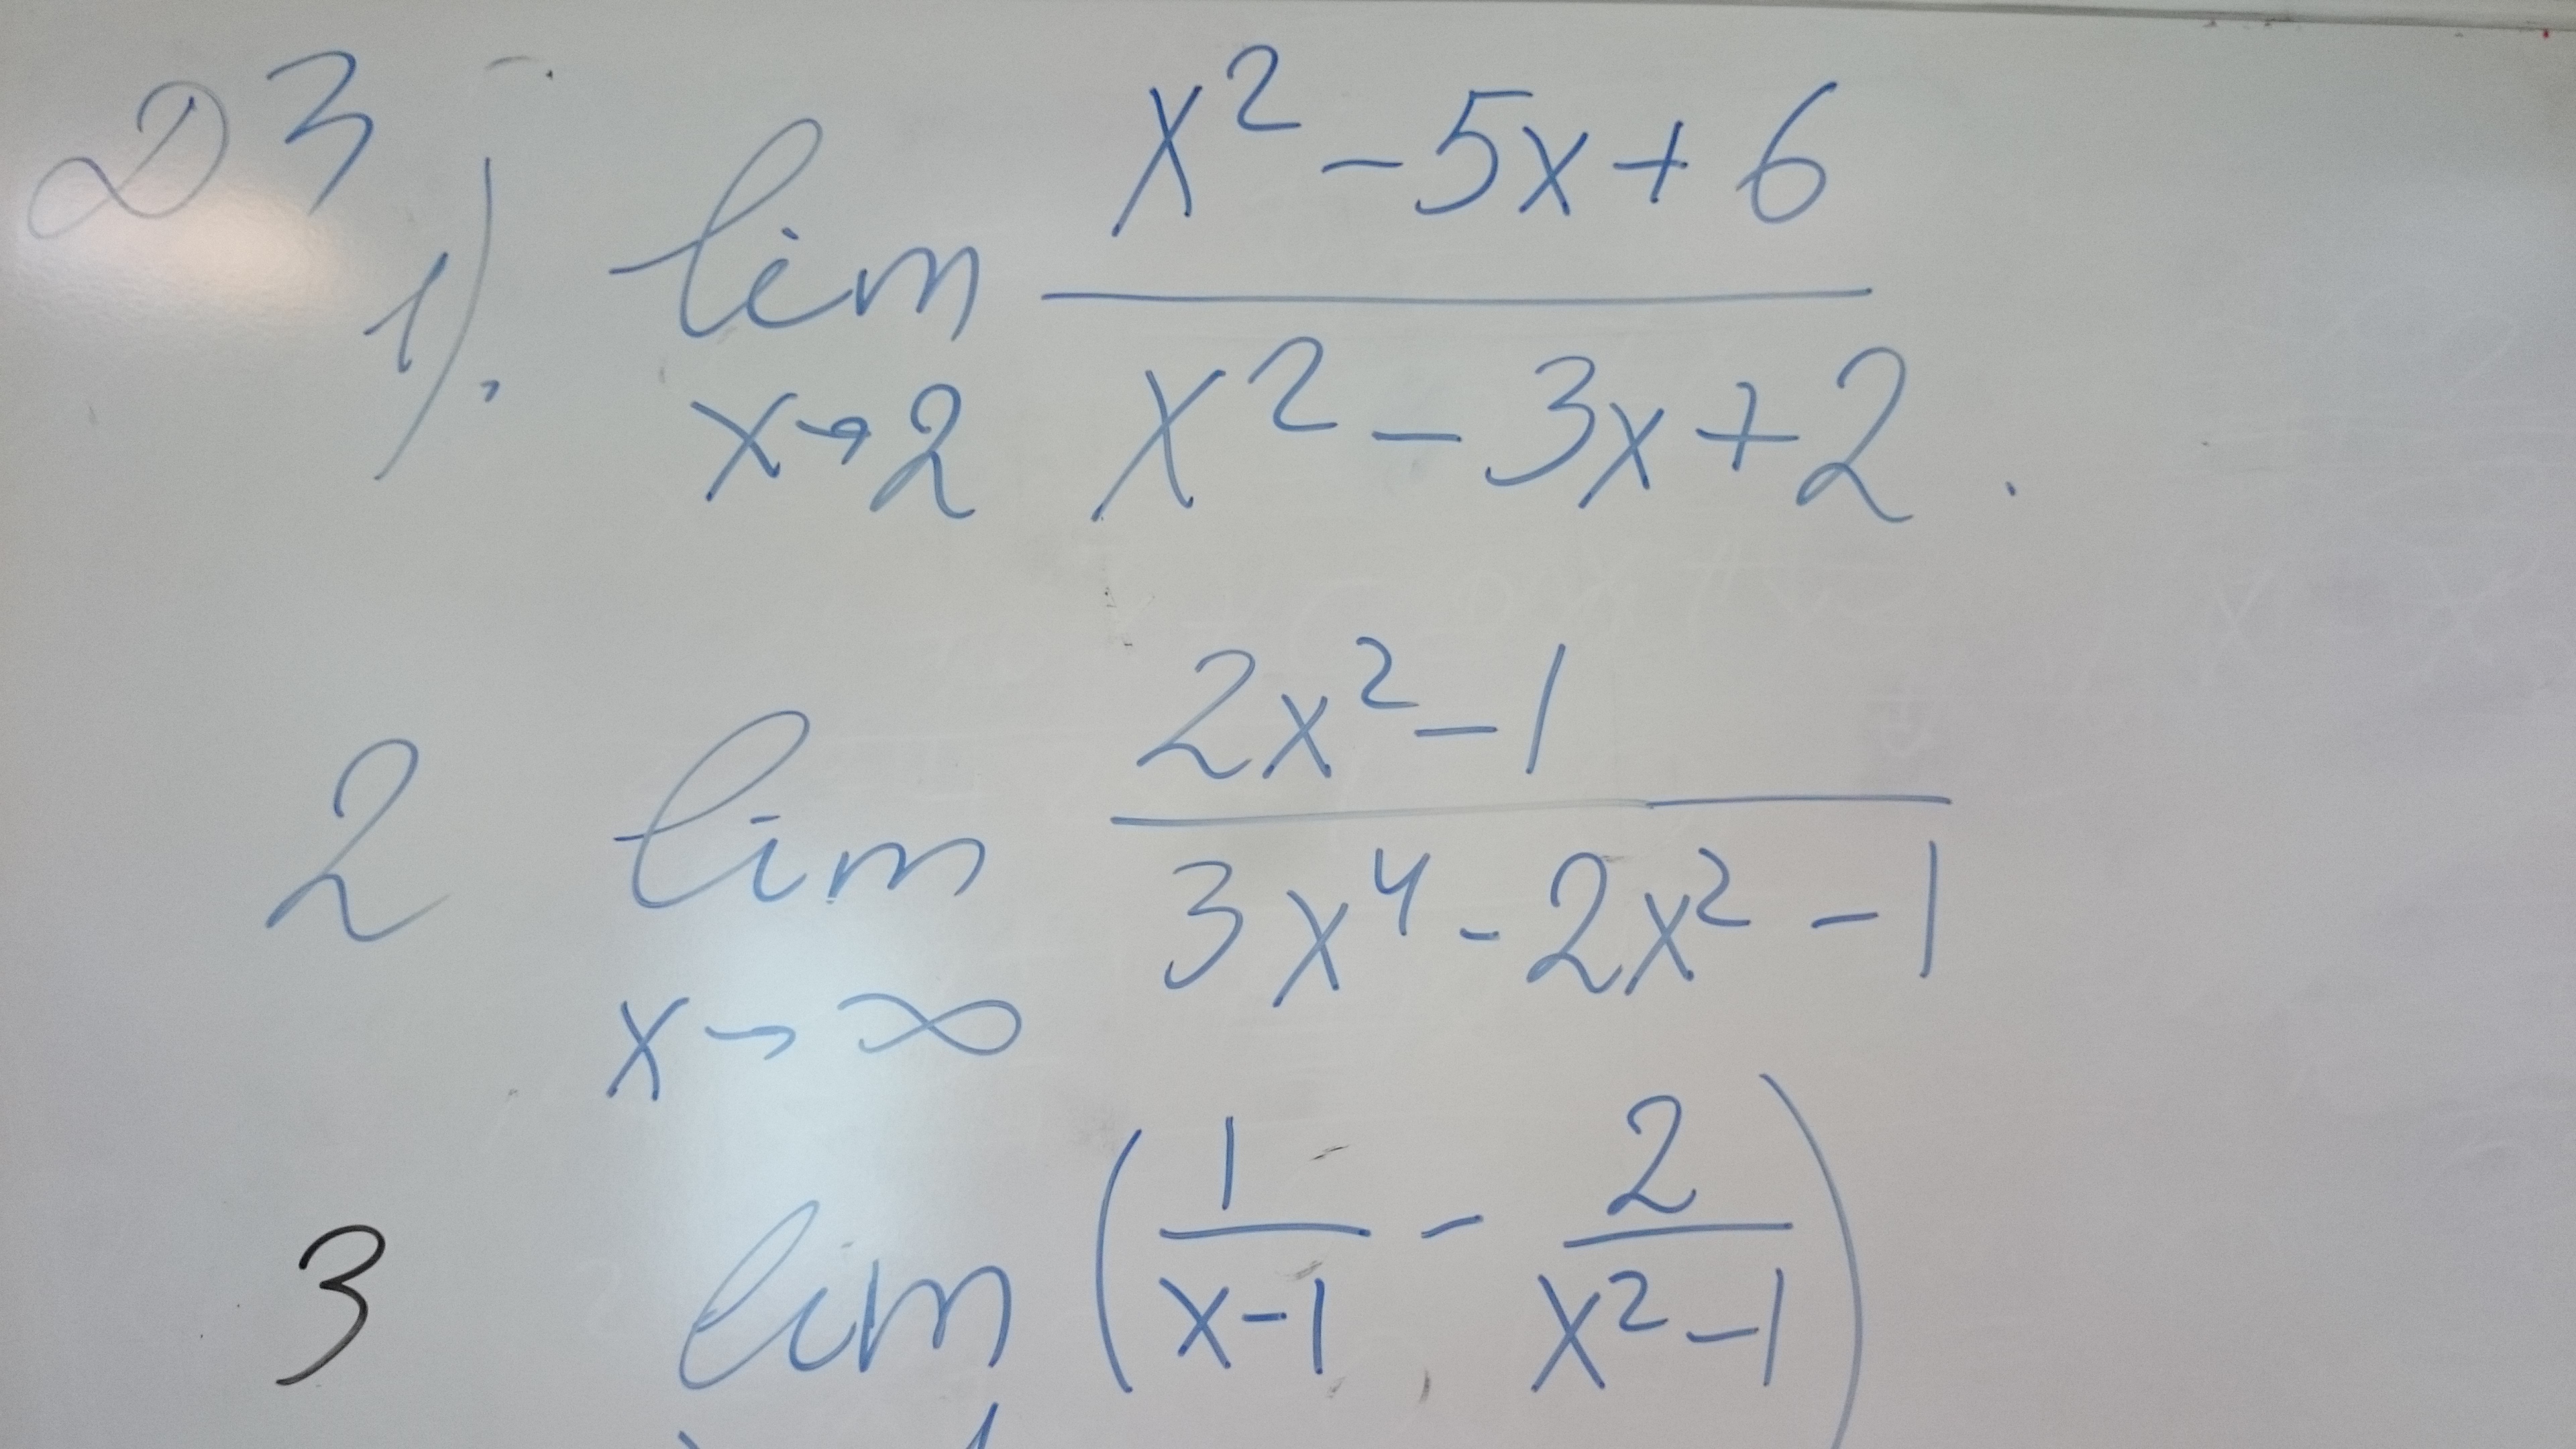 ДЗ
1). lim x→2 (x² - 5x + 6) / (x² - 3x + 2).
2 lim x→∞ (2x² - 1) / (3x⁴ - 2x² - 1)
3 lim (1/(x-1) - 2/(x² - 1))